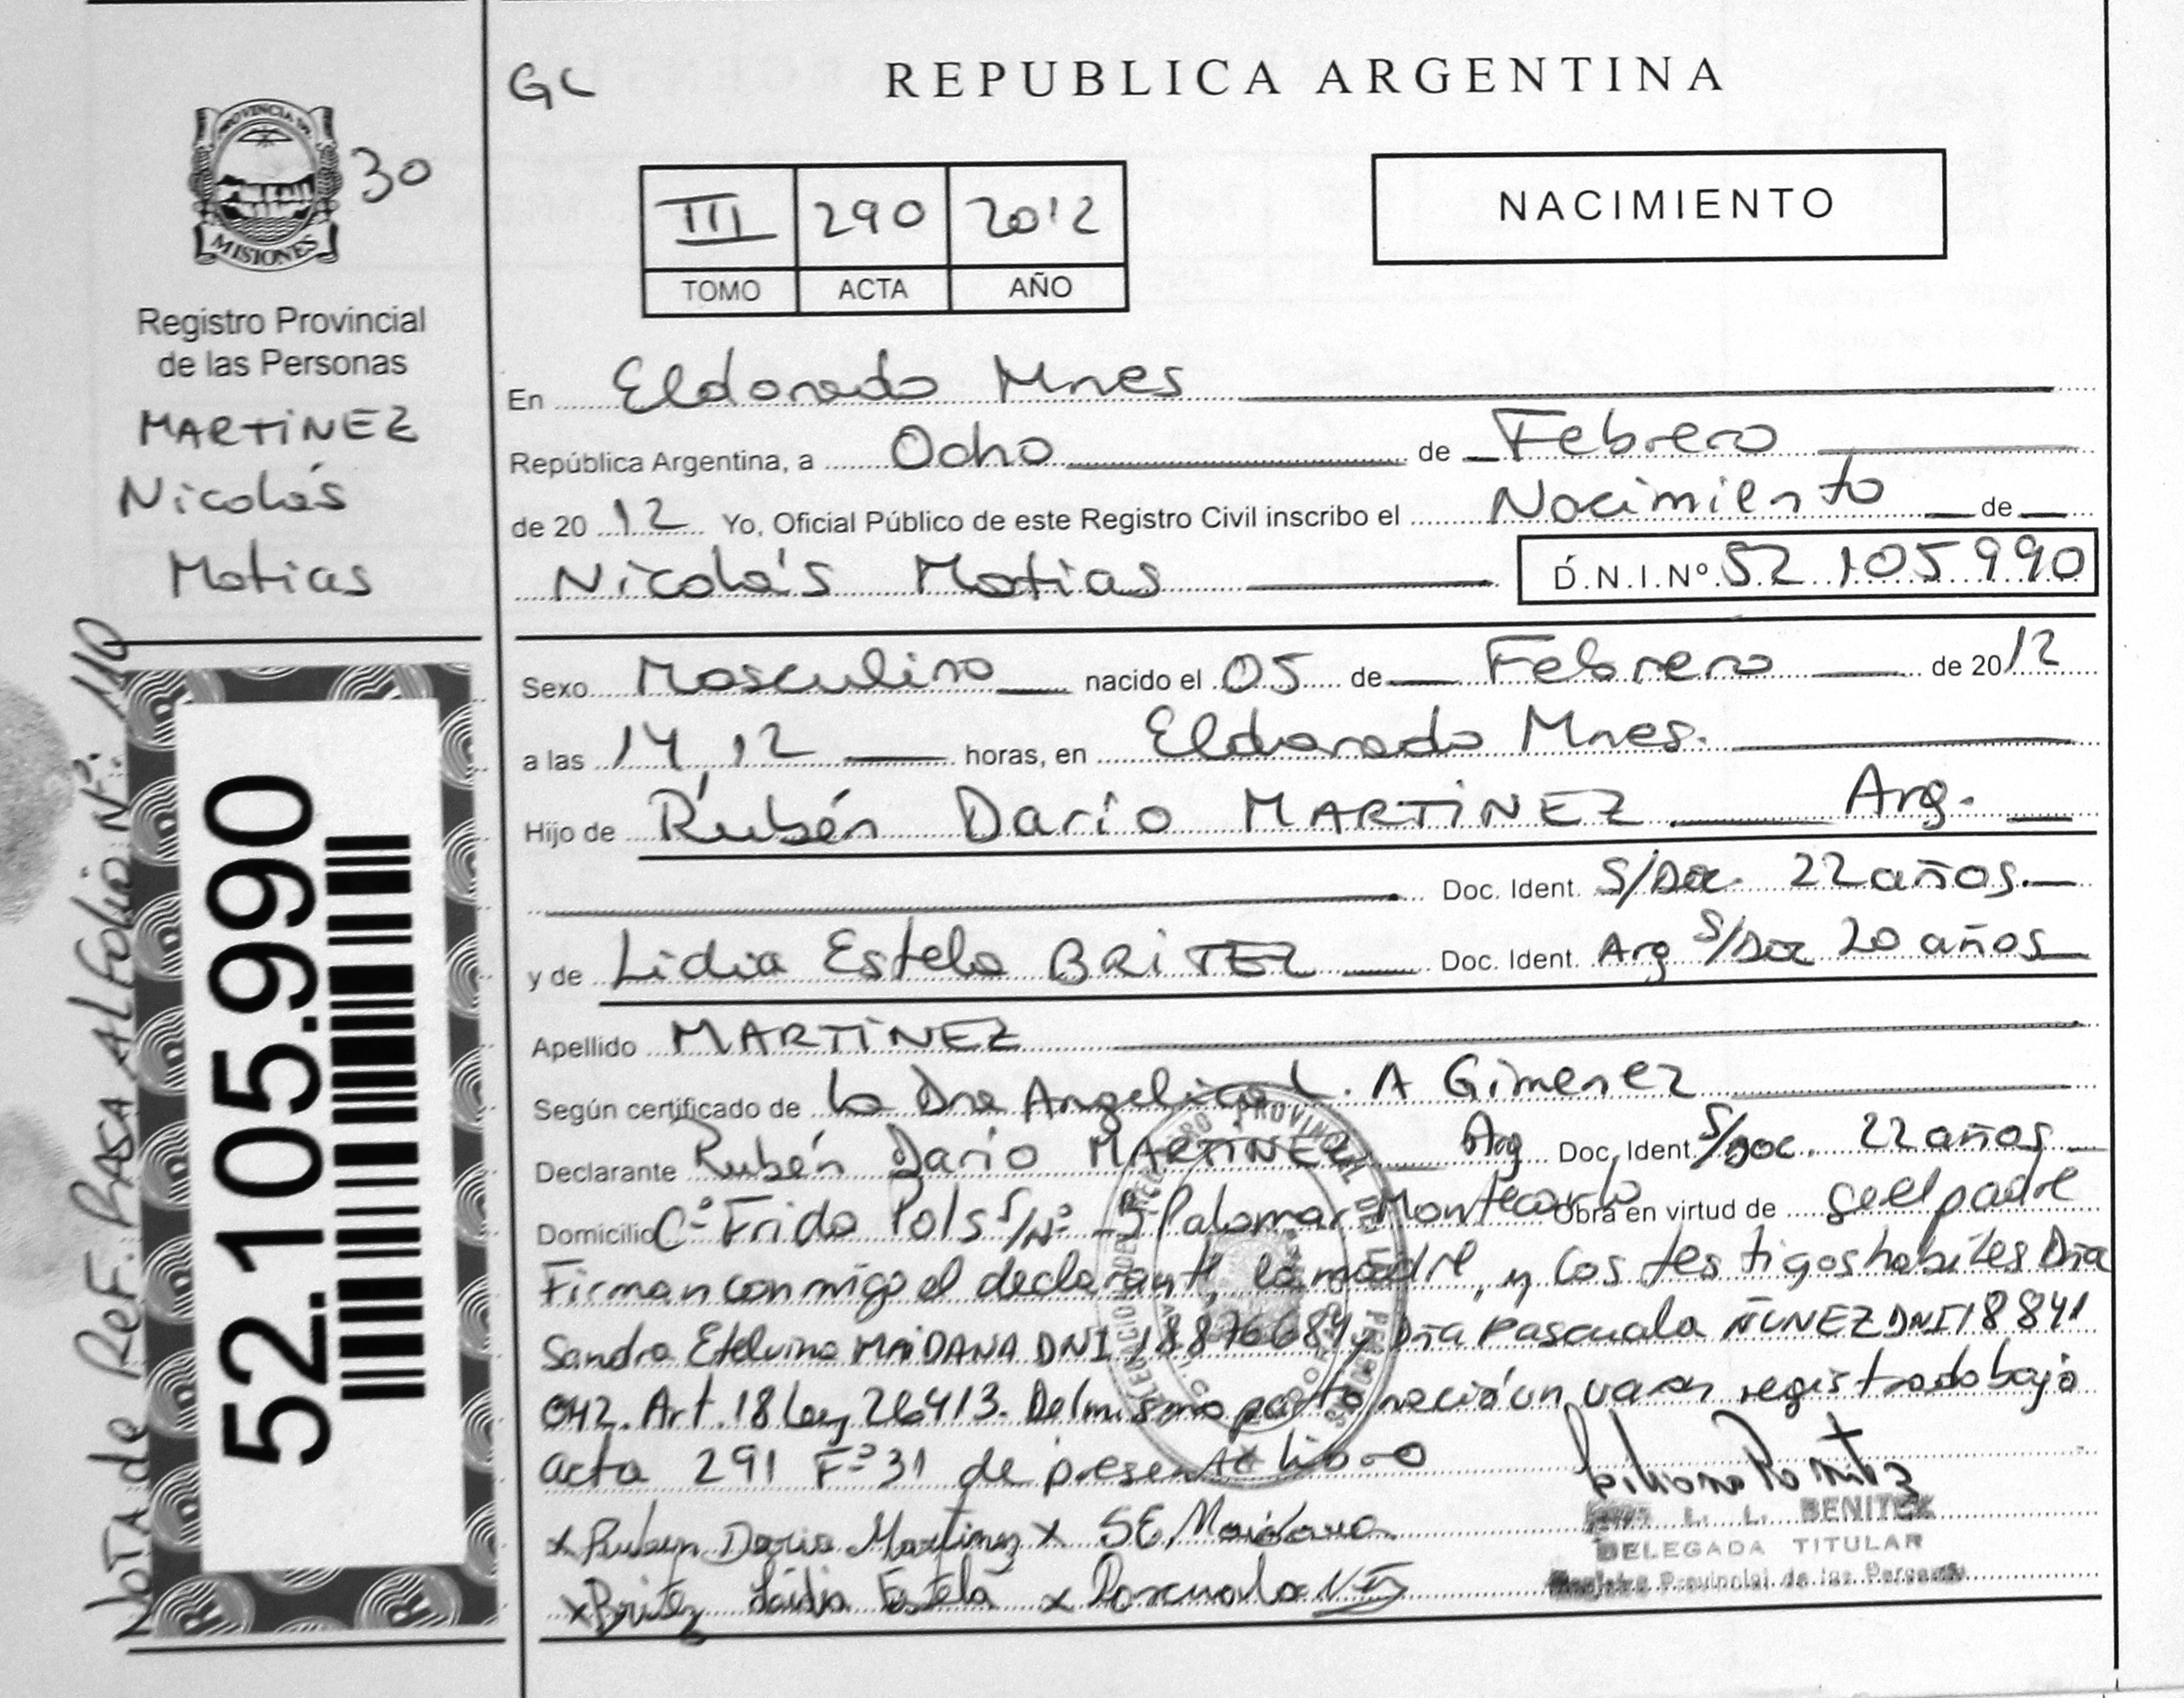 GC
REPUBLICA ARGENTINA
PROVINCIA DE
MISIONES
30
III 290 2012
TOMO ACTA AÑO
NACIMIENTO
Registro Provincial
de las Personas
MARTINEZ
Nicolás
Matias
En Eldorado Mnes
República Argentina, a Ocho de Febrero
de 20 12 Yo, Oficial Público de este Registro Civil inscribo el Nacimiento de
Nicolás Matias D.N.I.Nº 52 105990
Sexo Masculino nacido el 05 de Febrero de 20 12
a las 14,12 horas, en Eldorado Mnes.
Hijo de Rubén Darío MARTINEZ Arg.
Doc. Ident. S/Doc. 22 años.
y de Lidia Estela BRITEZ Doc. Ident. Arg S/Doc 20 años
Apellido MARTINEZ
Según certificado de la Dra Angelica L. A Gimenez
Declarante Rubén Darío MARTINEZ Arg Doc. Ident. S/Doc. 22 años
Domicilio Cº Frido Pols S/Nº Palomar Montecarlo Obra en virtud de ser el padre
Firman conmigo el declarante, la madre, y los testigos habiles Dña
Sandra Etelvina MAIDANA DNI 18876684 y Dña Pascuala ÑUNEZ DNI 18841
042. Art. 18 Ley 26413. Del mismo parto nació un varon registrado bajo
acta 291 Fº 31 de presente libro
x Ruben Dario Martinez x SE Maidana
x Britez Lidia Estela x Pascuala
L. L. BENITEZ
DELEGADA TITULAR
Registro Provincial de las Personas
NOTA de ReF. PASA AL Folio Nº. 110
52.105.990